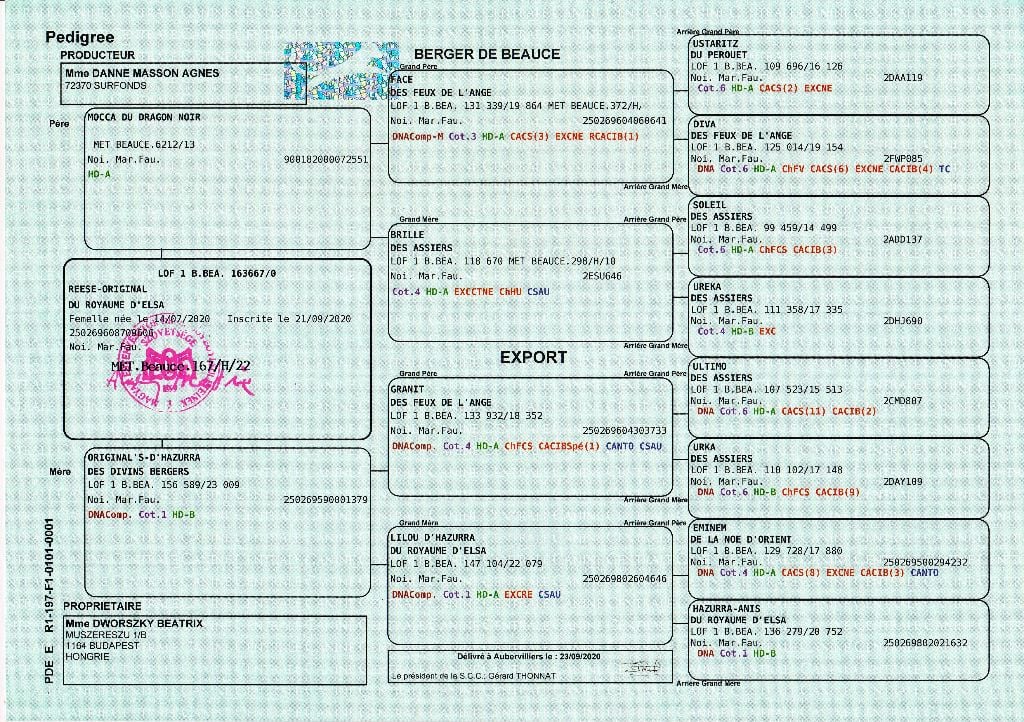 Pedigree
PRODUCTEUR
Mmo DANNE MASSON AGNES
72370 SURFONDS
BERGER DE BEAUCE
Père
MOCCA DU DRAGON NOIR
MET BEAUCE.6212/13
Noi. Mar.Fau. 900182000072551
HD-A
LOF 1 B.BEA. 163667/0
REESE-ORIGINAL
DU ROYAUME D'ELSA
Femelle née le 14/07/2020 Inscrite le 21/09/2020
Noi. Mar.Fau.
MET.Beauce.167/H/22
Mère
ORIGINAL'S-D'HAZURRA
DES DIVINS BERGERS
LOF 1 B.BEA. 156 589/23 009
Noi. Mar.Fau. 250269590001379
DNAComp. Cot.1 HD-B
PROPRIETAIRE
Mme DWORSZKY BEATRIX
MUSZERESZU 1/B
1164 BUDAPEST
HONGRIE
PDE E R1-197-F1-0101-0001
Grand Père
FACE
DES FEUX DE L'ANGE
LOF 1 B.BEA. 131 339/19 864 MET BEAUCE.372/H,
Noi. Mar.Fau. 250269604060641
DNAComp-M Cot.3 HD-A CACS(3) EXCNE RCACIB(1)
Grand Mère
BRILLE
DES ASSIERS
LOF 1 B.BEA. 118 670 MET BEAUCE.298/H/10
Noi. Mar.Fau. 2ESU646
Cot.4 HD-A EXCCTNE ChHU CSAU
EXPORT
Grand Père
GRANIT
DES FEUX DE L'ANGE
LOF 1 B.BEA. 133 932/18 352
Noi. Mar.Fau. 250269604303733
DNAComp. Cot.4 HD-A ChFCS CACIBSpé(1) CANTO CSAU
Grand Mère
LILOU D'HAZURRA
DU ROYAUME D'ELSA
LOF 1 B.BEA. 147 104/22 079
Noi. Mar.Fau. 250269802604646
DNAComp. Cot.1 HD-A EXCRE CSAU
Délivré à Aubervilliers le : 23/09/2020
Le président de la S.C.C.: Gérard THONNAT
Arrière Grand Père
USTARITZ
DU PEROUET
LOF 1 B.BEA. 109 696/16 126
Noi. Mar.Fau. 2DAA119
Cot.6 HD-A CACS(2) EXCNE
DIVA
DES FEUX DE L'ANGE
LOF 1 B.BEA. 125 014/19 154
Noi. Mar.Fau. 2FWP085
DNA Cot.6 HD-A ChFV CACS(6) EXCNE CACIB(4) TC
Arrière Grand Mère
SOLEIL
Arrière Grand Père
DES ASSIERS
LOF 1 B.BEA. 99 459/14 499
Noi. Mar.Fau. 2ADD137
Cot.6 HD-A ChFCS CACIB(3)
UREKA
DES ASSIERS
LOF 1 B.BEA. 111 358/17 335
Noi. Mar.Fau. 2DHJ690
Cot.4 HD-B EXC
Arrière Grand Mère
ULTIMO
Arrière Grand Père
DES ASSIERS
LOF 1 B.BEA. 107 523/15 513
Noi. Mar.Fau. 2CMD807
DNA Cot.6 HD-A CACS(11) CACIB(2)
URKA
DES ASSIERS
LOF 1 B.BEA. 110 102/17 148
Noi. Mar.Fau. 2DAY109
DNA Cot.6 HD-B ChFCS CACIB(9)
Arrière Grand Mère
Arrière Grand Père
EMINEM
DE LA NOE D'ORIENT
LOF 1 B.BEA. 129 728/17 880
Noi. Mar.Fau. 250269500294232
DNA Cot.4 HD-A CACS(8) EXCNE CACIB(3) CANTO
HAZURRA-ANIS
DU ROYAUME D'ELSA
LOF 1 B.BEA. 136 279/20 752
Noi. Mar.Fau. 250269802021632
DNA Cot.1 HD-B
Arrière Grand Mère